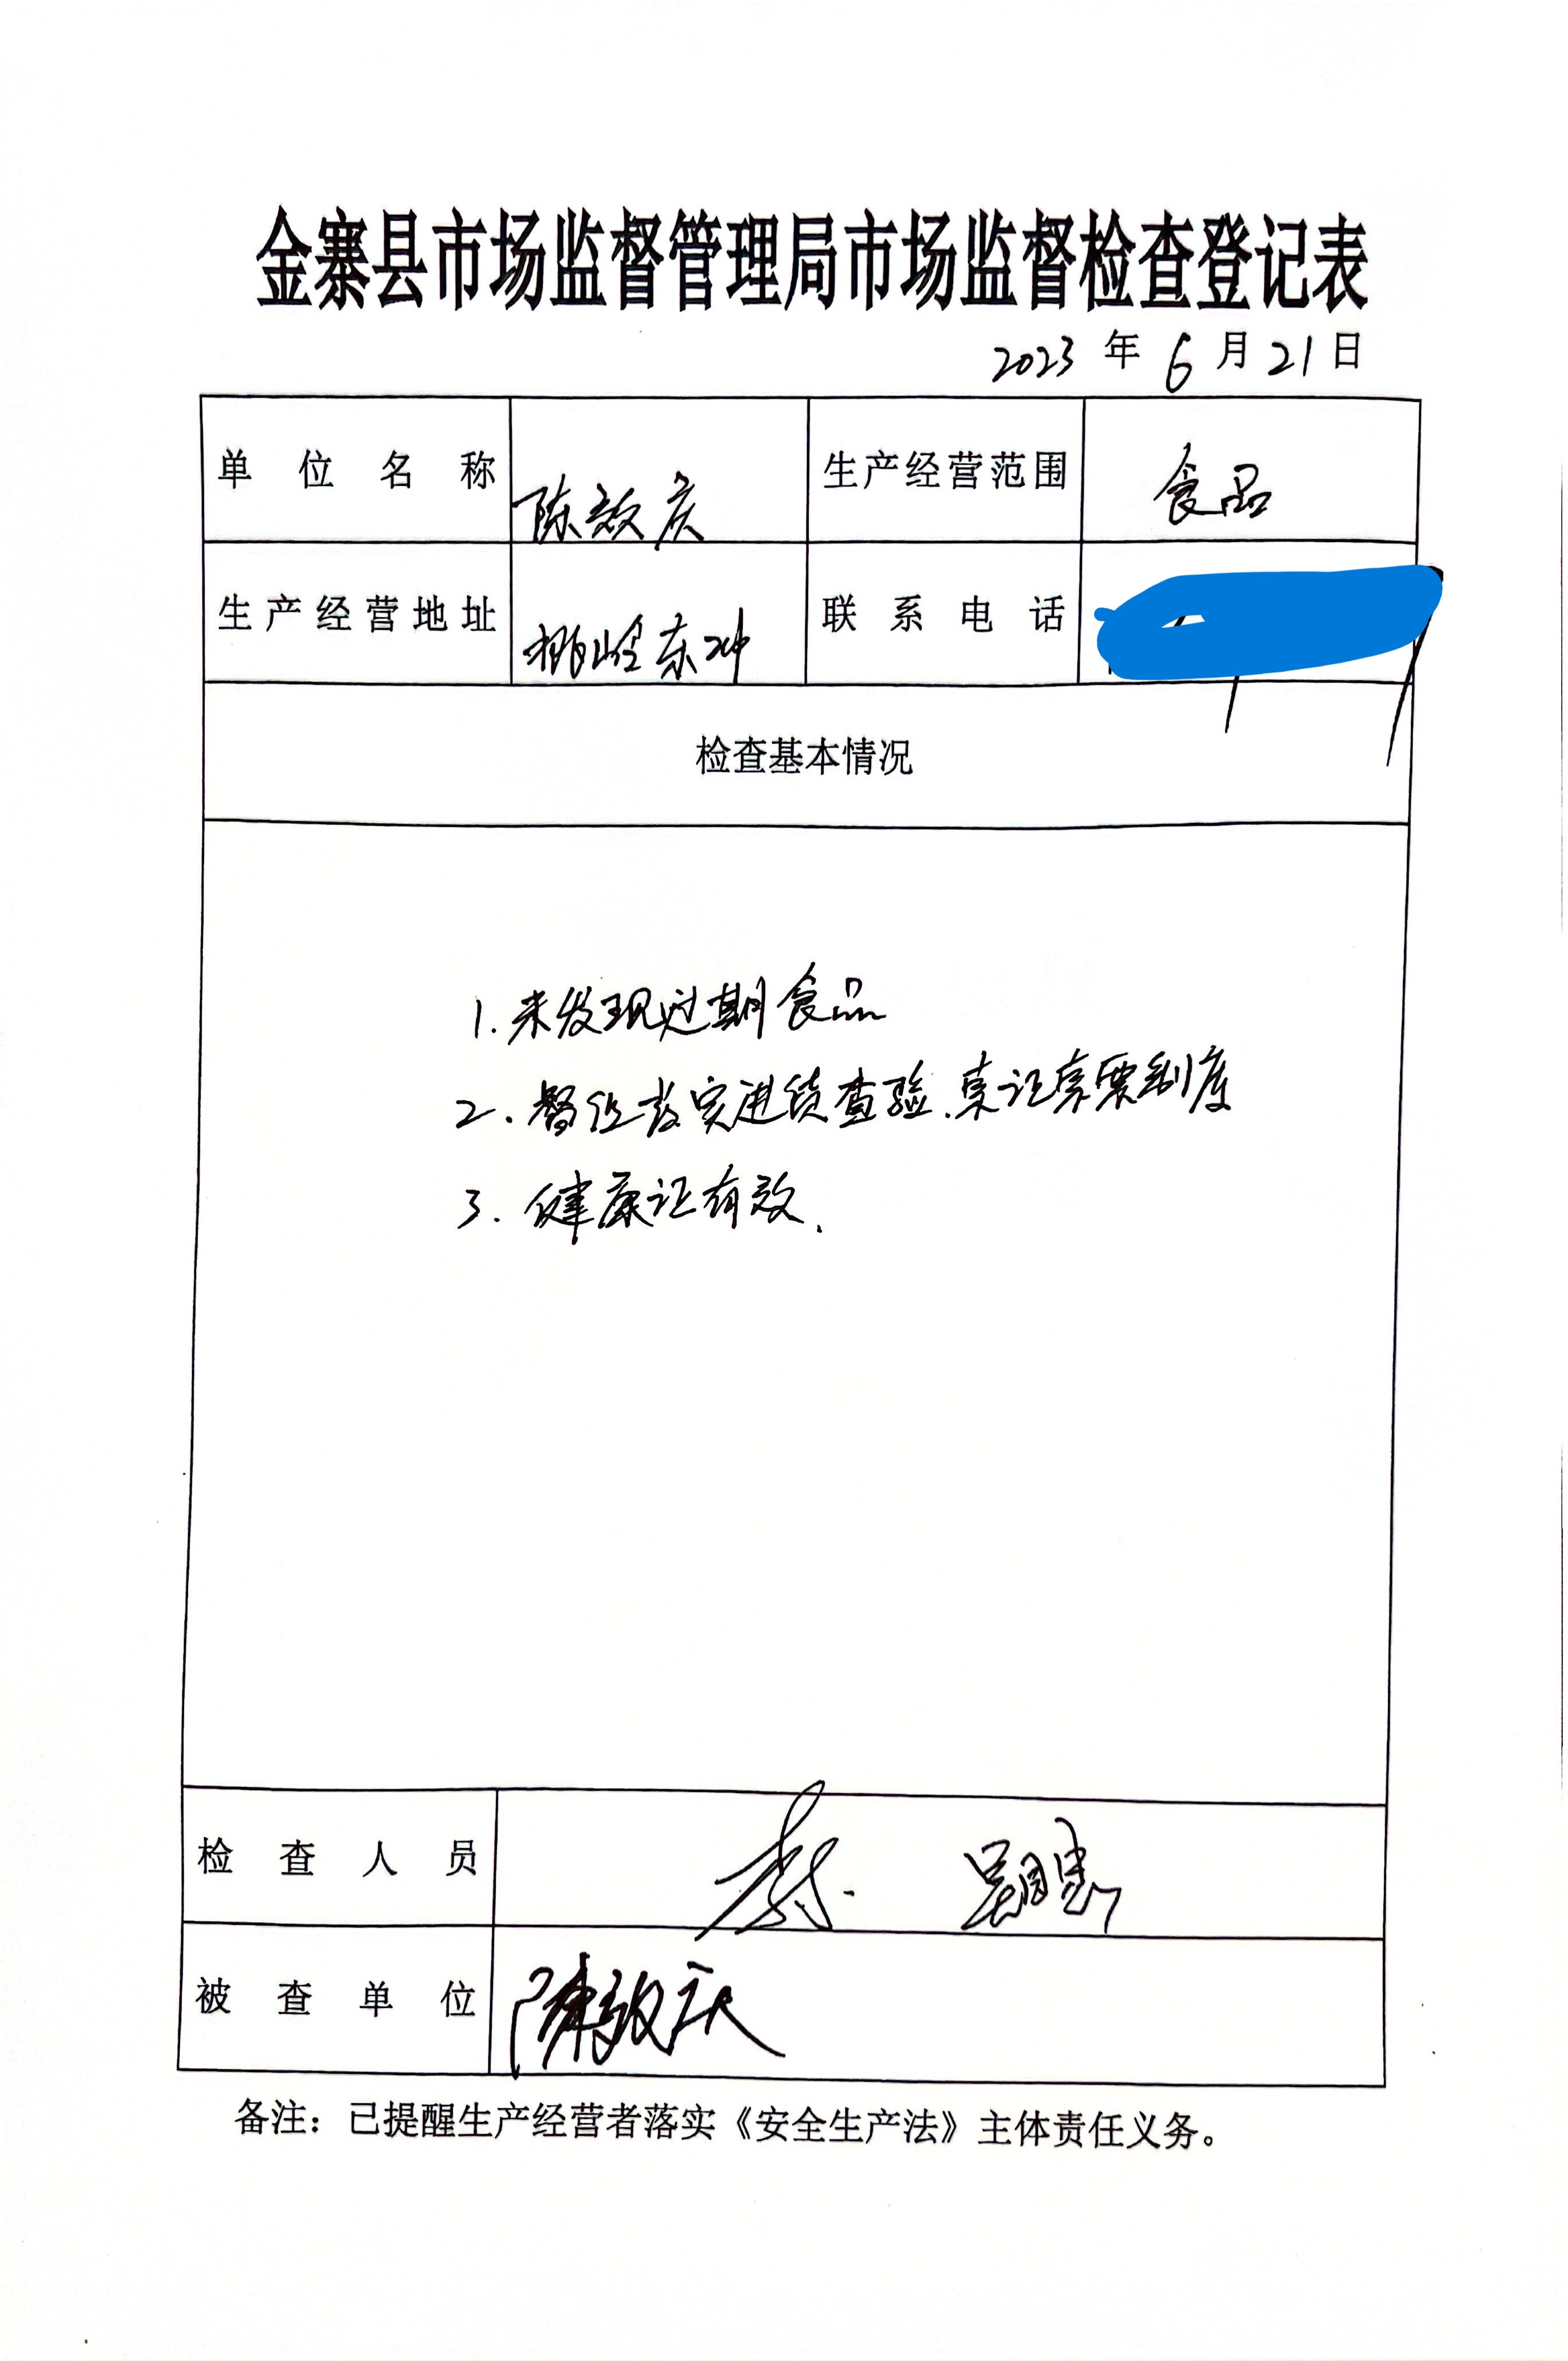 金寨县市场监督管理局市场监督检查登记表
2023 年 6 月 21 日
单位名称 陈效庆 生产经营范围 食品
生产经营地址 东冲 联系电话
检查基本情况
1. 未发现过期食品
2. 督促落实进货查验、索证索票制度
3. 健康证有效.
检查人员
被查单位 陈效庆
备注：已提醒生产经营者落实《安全生产法》主体责任义务。